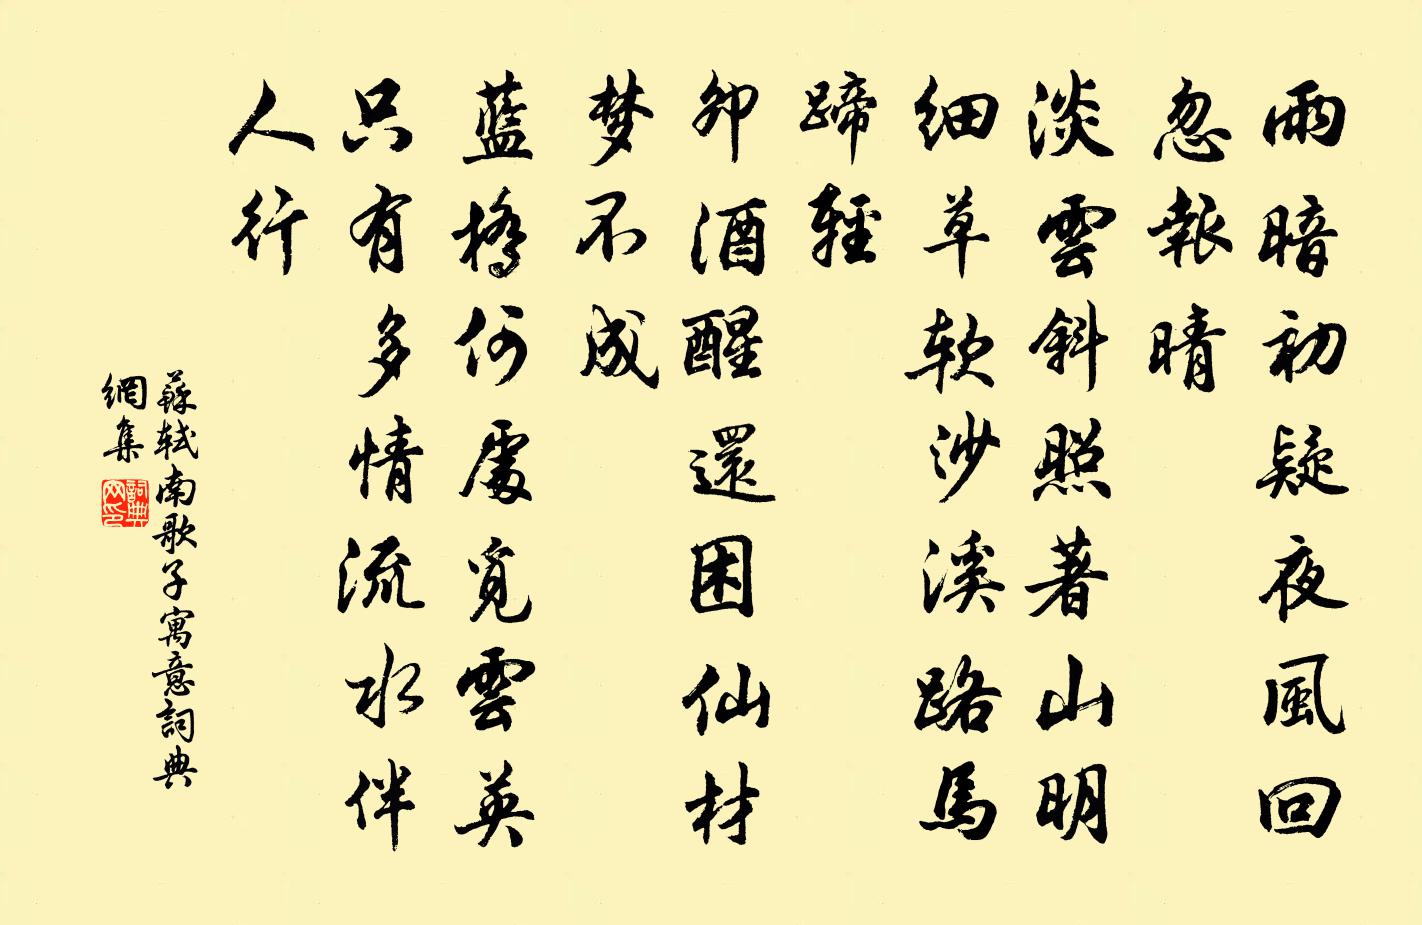 雨暗初疑夜風回
忽報晴
淡雲斜照著山明
細草軟沙溪路馬
蹄輕
卯酒醒還困仙材
梦不成
藍橋何處覓雲英
只有多情流水伴
人行
蘇軾南歌子寓意詞典
網集
詞典
网印